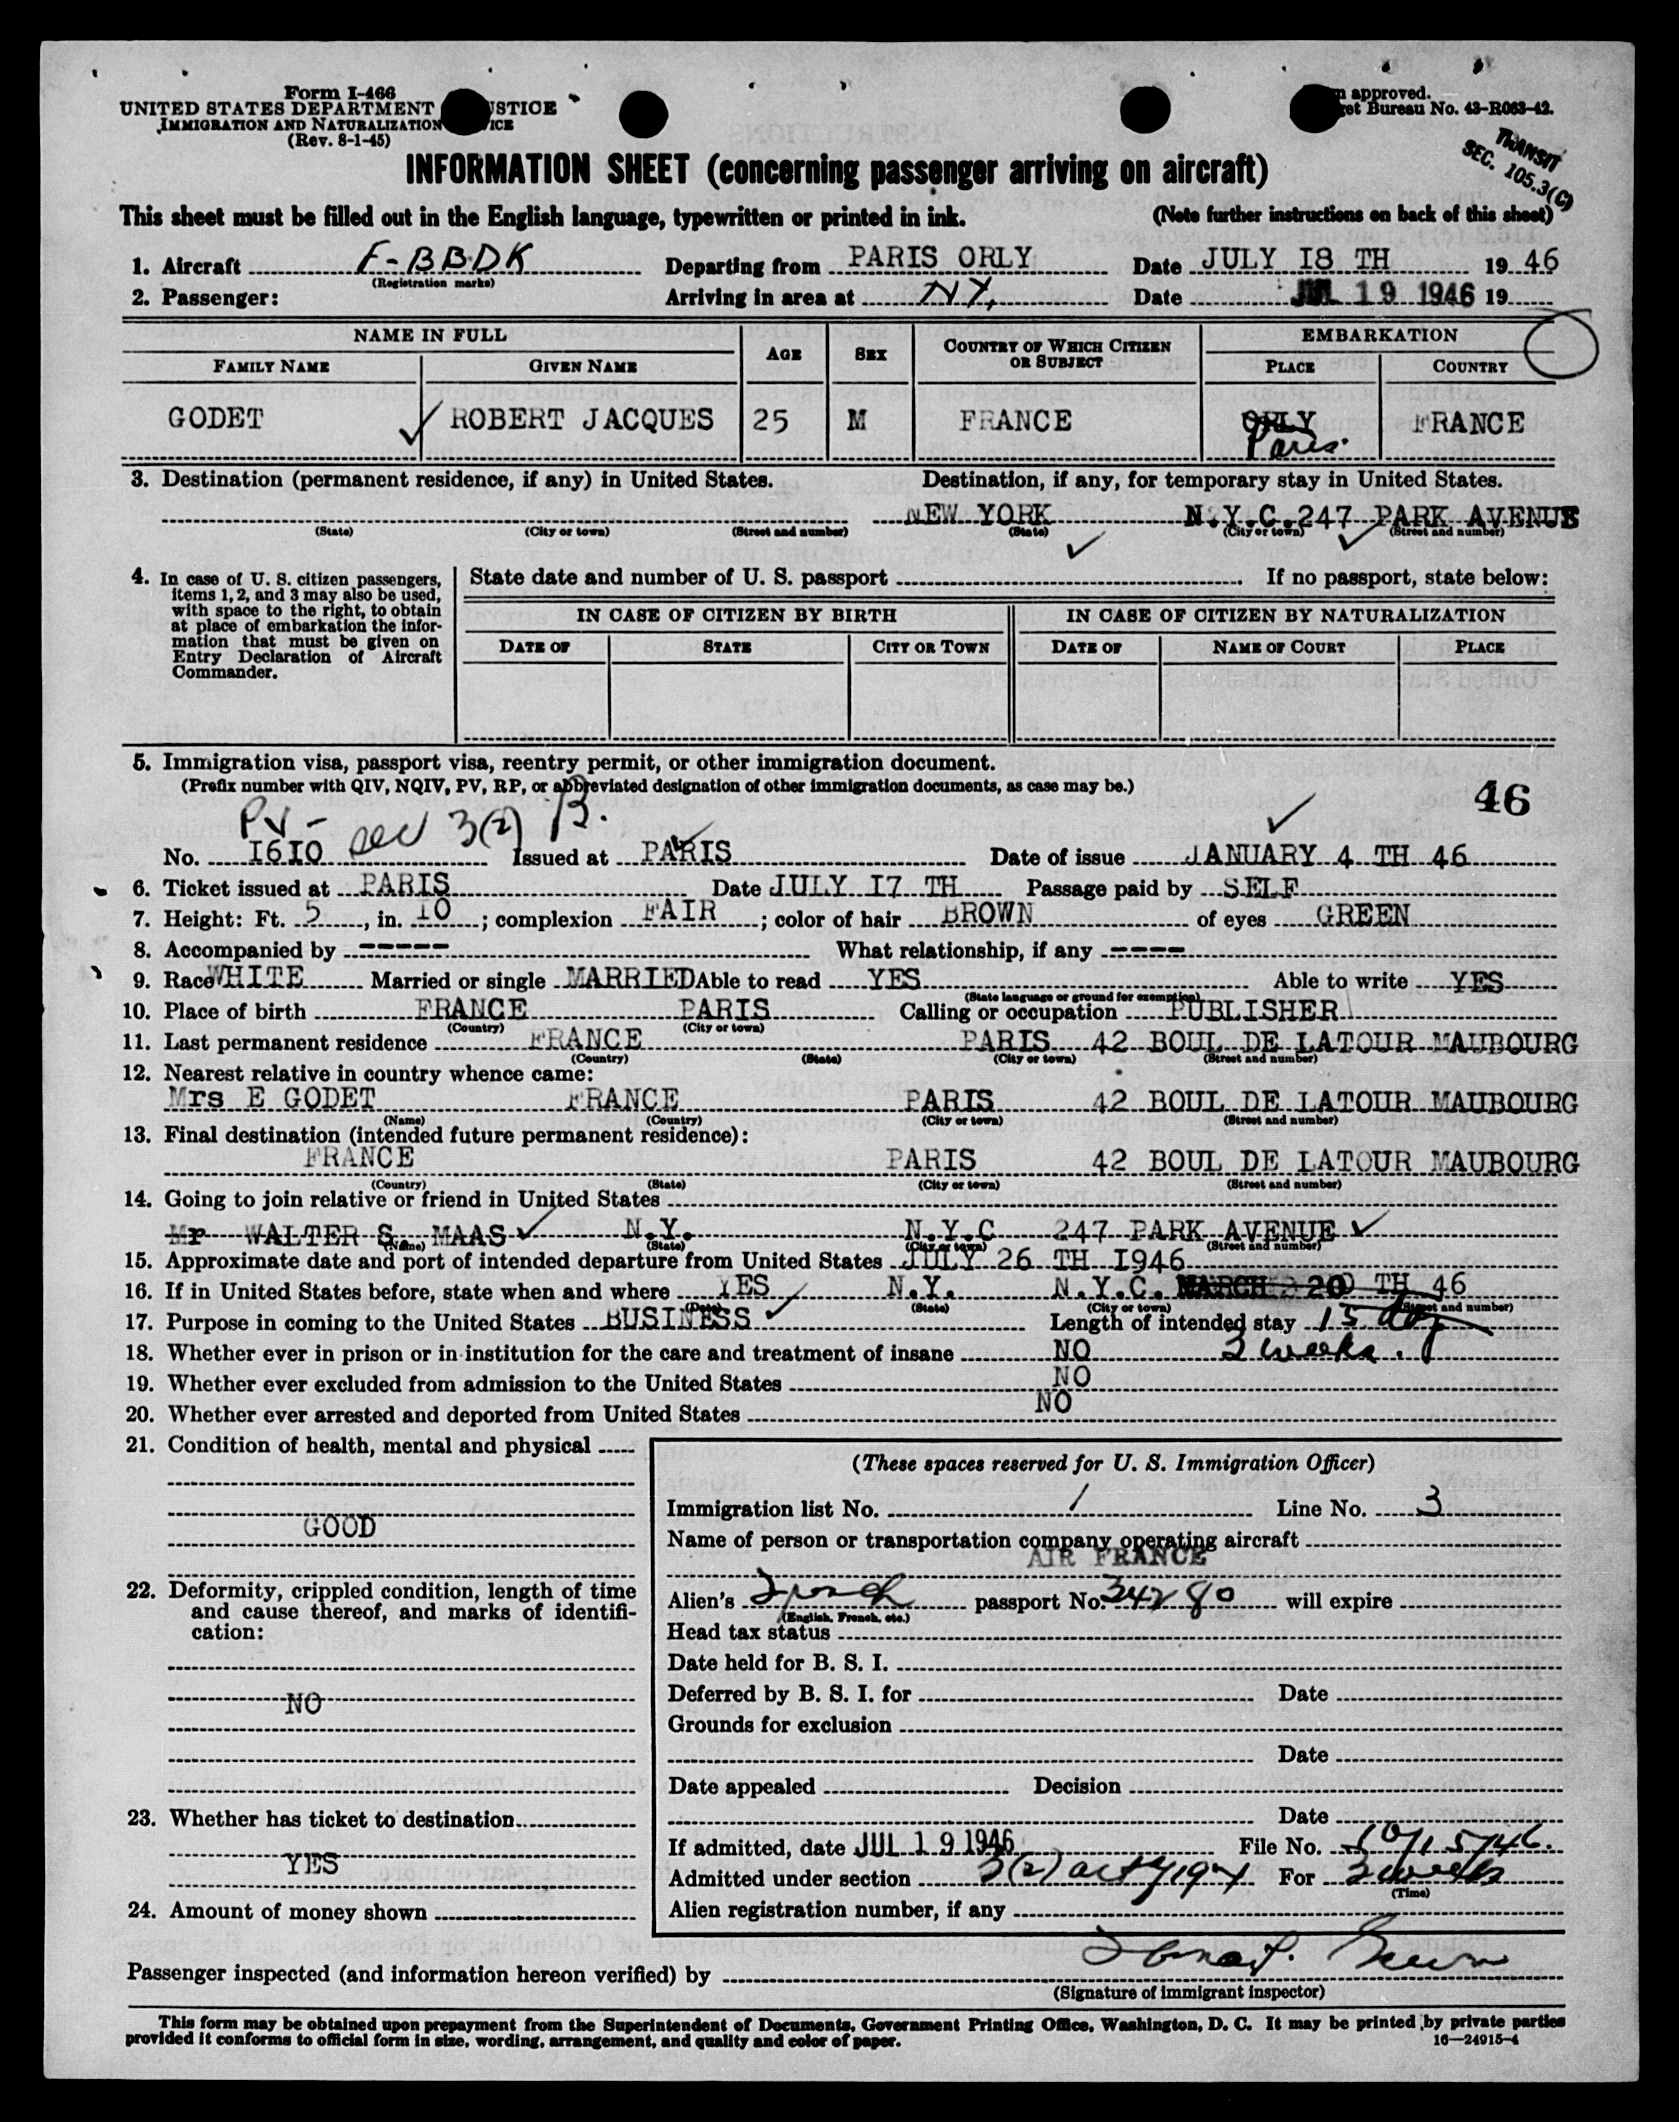 Form I-466
UNITED STATES DEPARTMENT STICE
IMMIGRATION AND NATURALIZATION ICE
(Rev. 8-1-45)
approved.
et Bureau No. 43-R063-42.
TRANSIT
SEC. 105.3(C)
INFORMATION SHEET (concerning passenger arriving on aircraft)
This sheet must be filled out in the English language, typewritten or printed in ink. (Note further instructions on back of this sheet)
1. Aircraft F-BBDK Departing from PARIS ORLY Date JULY I8 TH 19 46
(Registration marks)
2. Passenger: Arriving in area at NY, Date JUL 19 1946 19
NAME IN FULL AGE SEX COUNTRY OF WHICH CITIZEN OR SUBJECT EMBARKATION
FAMILY NAME GIVEN NAME PLACE COUNTRY
GODET ROBERT JACQUES 25 M FRANCE ORLY FRANCE
Paris.
3. Destination (permanent residence, if any) in United States. Destination, if any, for temporary stay in United States.
NEW YORK N.Y.C. 247 PARK AVENUE
(State) (City or town) (Street and number) (State) (City or town) (Street and number)
4. In case of U. S. citizen passengers, items 1, 2, and 3 may also be used, with space to the right, to obtain at place of embarkation the information that must be given on Entry Declaration of Aircraft Commander.
State date and number of U. S. passport If no passport, state below:
IN CASE OF CITIZEN BY BIRTH IN CASE OF CITIZEN BY NATURALIZATION
DATE OF STATE CITY OR TOWN DATE OF NAME OF COURT PLACE
5. Immigration visa, passport visa, reentry permit, or other immigration document.
(Prefix number with QIV, NQIV, PV, RP, or abbreviated designation of other immigration documents, as case may be.)
46
PV - sec 3(2) B.
No. I6I0 Issued at PARIS Date of issue JANUARY 4 TH 46
6. Ticket issued at PARIS Date JULY I7 TH Passage paid by SELF
7. Height: Ft. 5, in. 10; complexion FAIR; color of hair BROWN of eyes GREEN
8. Accompanied by ----- What relationship, if any ----
9. Race WHITE Married or single MARRIED Able to read YES Able to write YES
(State language or ground for exemption)
10. Place of birth FRANCE PARIS Calling or occupation PUBLISHER
(Country) (City or town)
11. Last permanent residence FRANCE PARIS 42 BOUL DE LATOUR MAUBOURG
(Country) (State) (City or town) (Street and number)
12. Nearest relative in country whence came:
Mrs E GODET FRANCE PARIS 42 BOUL DE LATOUR MAUBOURG
(Name) (Country) (City or town) (Street and number)
13. Final destination (intended future permanent residence):
FRANCE PARIS 42 BOUL DE LATOUR MAUBOURG
(Country) (State) (City or town) (Street and number)
14. Going to join relative or friend in United States
Mr WALTER S. MAAS N.Y. N.Y.C 247 PARK AVENUE
(Name) (State) (City or town) (Street and number)
15. Approximate date and port of intended departure from United States JULY 26 TH I946
16. If in United States before, state when and where YES N.Y. N.Y.C. MARCH 20 TH 46
(Date) (State) (City or town) (Street and number)
17. Purpose in coming to the United States BUSINESS Length of intended stay 15 day
3 weeks.
18. Whether ever in prison or in institution for the care and treatment of insane NO
19. Whether ever excluded from admission to the United States NO
20. Whether ever arrested and deported from United States NO
21. Condition of health, mental and physical
GOOD
22. Deformity, crippled condition, length of time and cause thereof, and marks of identification:
NO
23. Whether has ticket to destination
YES
24. Amount of money shown
(These spaces reserved for U. S. Immigration Officer)
Immigration list No. 1 Line No. 3
Name of person or transportation company operating aircraft
AIR FRANCE
Alien's French passport No. 34280 will expire
(English, French, etc.)
Head tax status
Date held for B. S. I.
Deferred by B. S. I. for Date
Grounds for exclusion
Date
Date appealed Decision
Date
If admitted, date JUL 19 1946 File No.
Admitted under section 3(2) act of 1924 For 3 weeks
(Time)
Alien registration number, if any
Passenger inspected (and information hereon verified) by
(Signature of immigrant inspector)
This form may be obtained upon prepayment from the Superintendent of Documents, Government Printing Office, Washington, D. C. It may be printed by private parties
provided it conforms to official form in size, wording, arrangement, and quality and color of paper. 16—24915-4